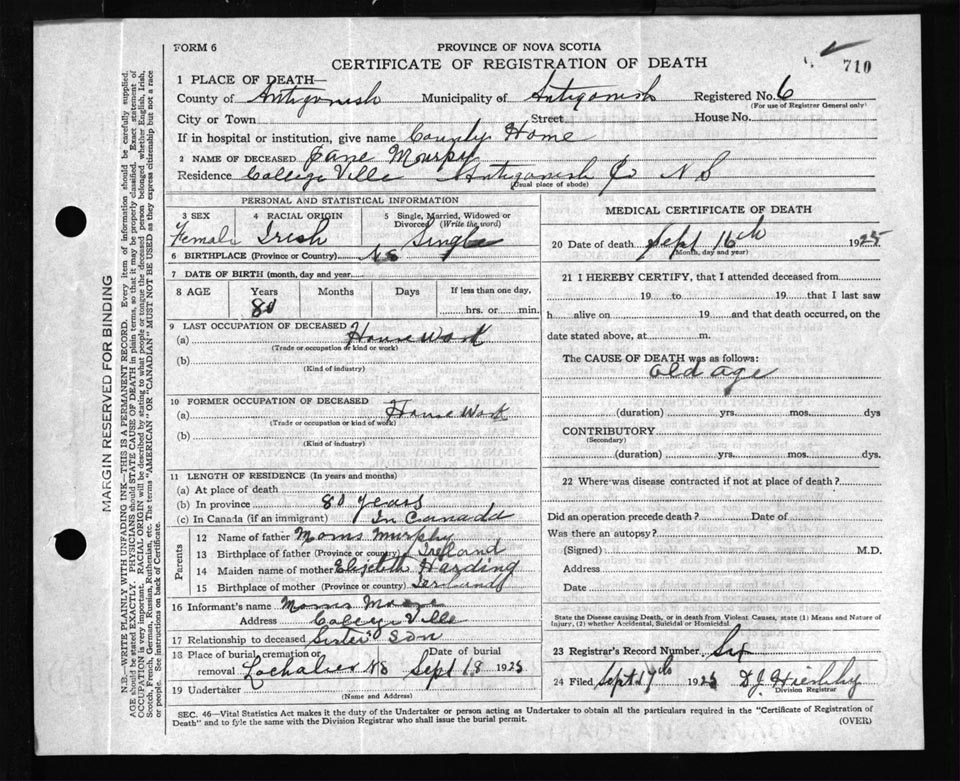 FORM 6
PROVINCE OF NOVA SCOTIA
CERTIFICATE OF REGISTRATION OF DEATH
710
1 PLACE OF DEATH—
County of Antigonish Municipality of Antigonish Registered No. 6
(For use of Registrar General only)
City or Town Street House No.
If in hospital or institution, give name County Home
2 NAME OF DECEASED Jane Murpy
Residence College Ville Antigonish Co N S
(Usual place of abode)
PERSONAL AND STATISTICAL INFORMATION
3 SEX 4 RACIAL ORIGIN 5 Single, Married, Widowed or Divorced (Write the word)
Female Irish Single
6 BIRTHPLACE (Province or Country) NS
7 DATE OF BIRTH (month, day and year)
8 AGE Years Months Days If less than one day,
80 hrs. or min.
9 LAST OCCUPATION OF DECEASED
(a) House Work
(Trade or occupation or kind or work)
(b)
(Kind of industry)
10 FORMER OCCUPATION OF DECEASED
(a) House Work
(Trade or occupation or kind of work)
(b)
(Kind of industry)
11 LENGTH OF RESIDENCE (In years and months)
(a) At place of death
(b) In province 80 years
(c) In Canada (if an immigrant) In Canada
Parents
12 Name of father Murphy
13 Birthplace of father (Province or country) Ireland
14 Maiden name of mother Elizabeth Harding
15 Birthplace of mother (Province or country) Ireland
16 Informant's name
Address College Ville
17 Relationship to deceased Sister Son
18 Place of burial, cremation or removal Lochaber NS Date of burial Sept 18 1925
19 Undertaker
(Name and Address)
MEDICAL CERTIFICATE OF DEATH
20 Date of death Sept 16th 1925
(Month, day and year)
21 I HEREBY CERTIFY, that I attended deceased from
19 to 19 that I last saw
h alive on 19 and that death occurred, on
date stated above, at m.
The CAUSE OF DEATH was as follows:
Old age
(duration) yrs. mos. dys
CONTRIBUTORY
(Secondary)
(duration) yrs. mos. dys.
22 Where was disease contracted if not at place of death?
Did an operation precede death? Date of
Was there an autopsy?
(Signed) M.D.
Address
Date
State the Disease causing Death, or in death from Violent Causes, state (1) Means and Nature of
Injury, (2) whether Accidental, Suicidal or Homicidal.
23 Registrar's Record Number Six
24 Filed Sept 17th 1925 D.J.
Division Registrar
SEC. 46—Vital Statistics Act makes it the duty of the Undertaker or person acting as Undertaker to obtain all the particulars required in the "Certificate of Registration of
Death" and to fyle the same with the Division Registrar who shall issue the burial permit.
(OVER)
MARGIN RESERVED FOR BINDING
N.B.—WRITE PLAINLY WITH UNFADING INK—THIS IS A PERMANENT RECORD. Every item of information should be carefully supplied.
AGE should be stated EXACTLY. PHYSICIANS should STATE CAUSE OF DEATH in plain terms, so that it may be properly classified. Exact statement of
OCCUPATION is very important. RACIAL ORIGIN will be described by stating to what people or tongue the deceased person belonged whether English, Irish,
Scotch, French, German, Russian, Ruthenian, etc. The terms "AMERICAN" OR "CANADIAN" MUST NOT BE USED as they express citizenship but not a race
or people. See instructions on back of Certificate.